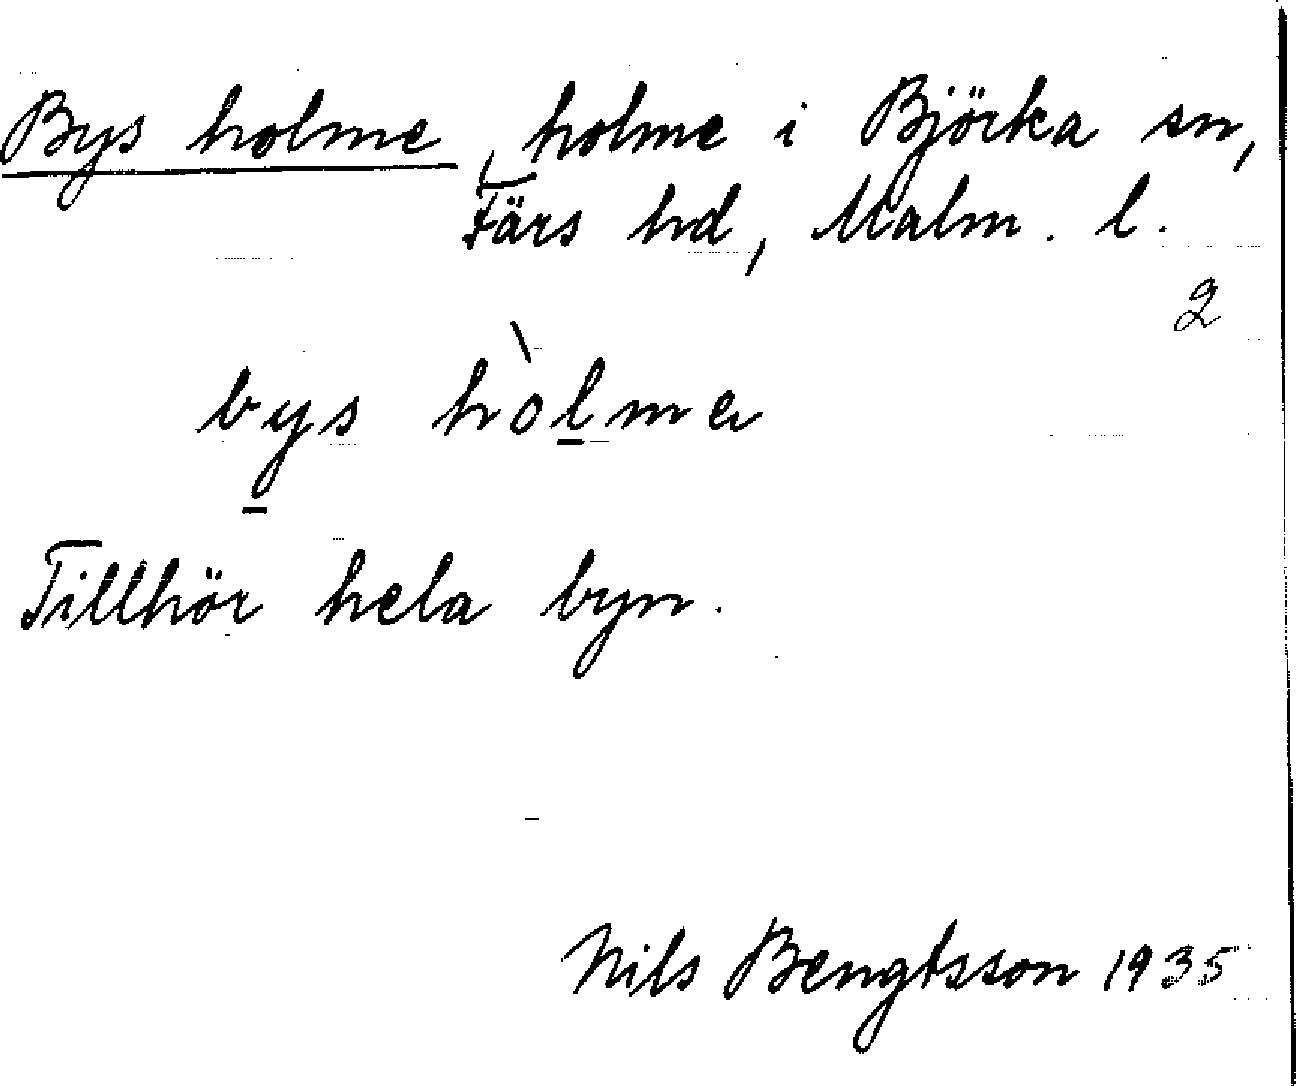 Bys holme, holme i Björka sn,
Färs hd, Malm. l.
2
bys hòlmə
Tillhör hela byn.
Nils Bengtsson 1935